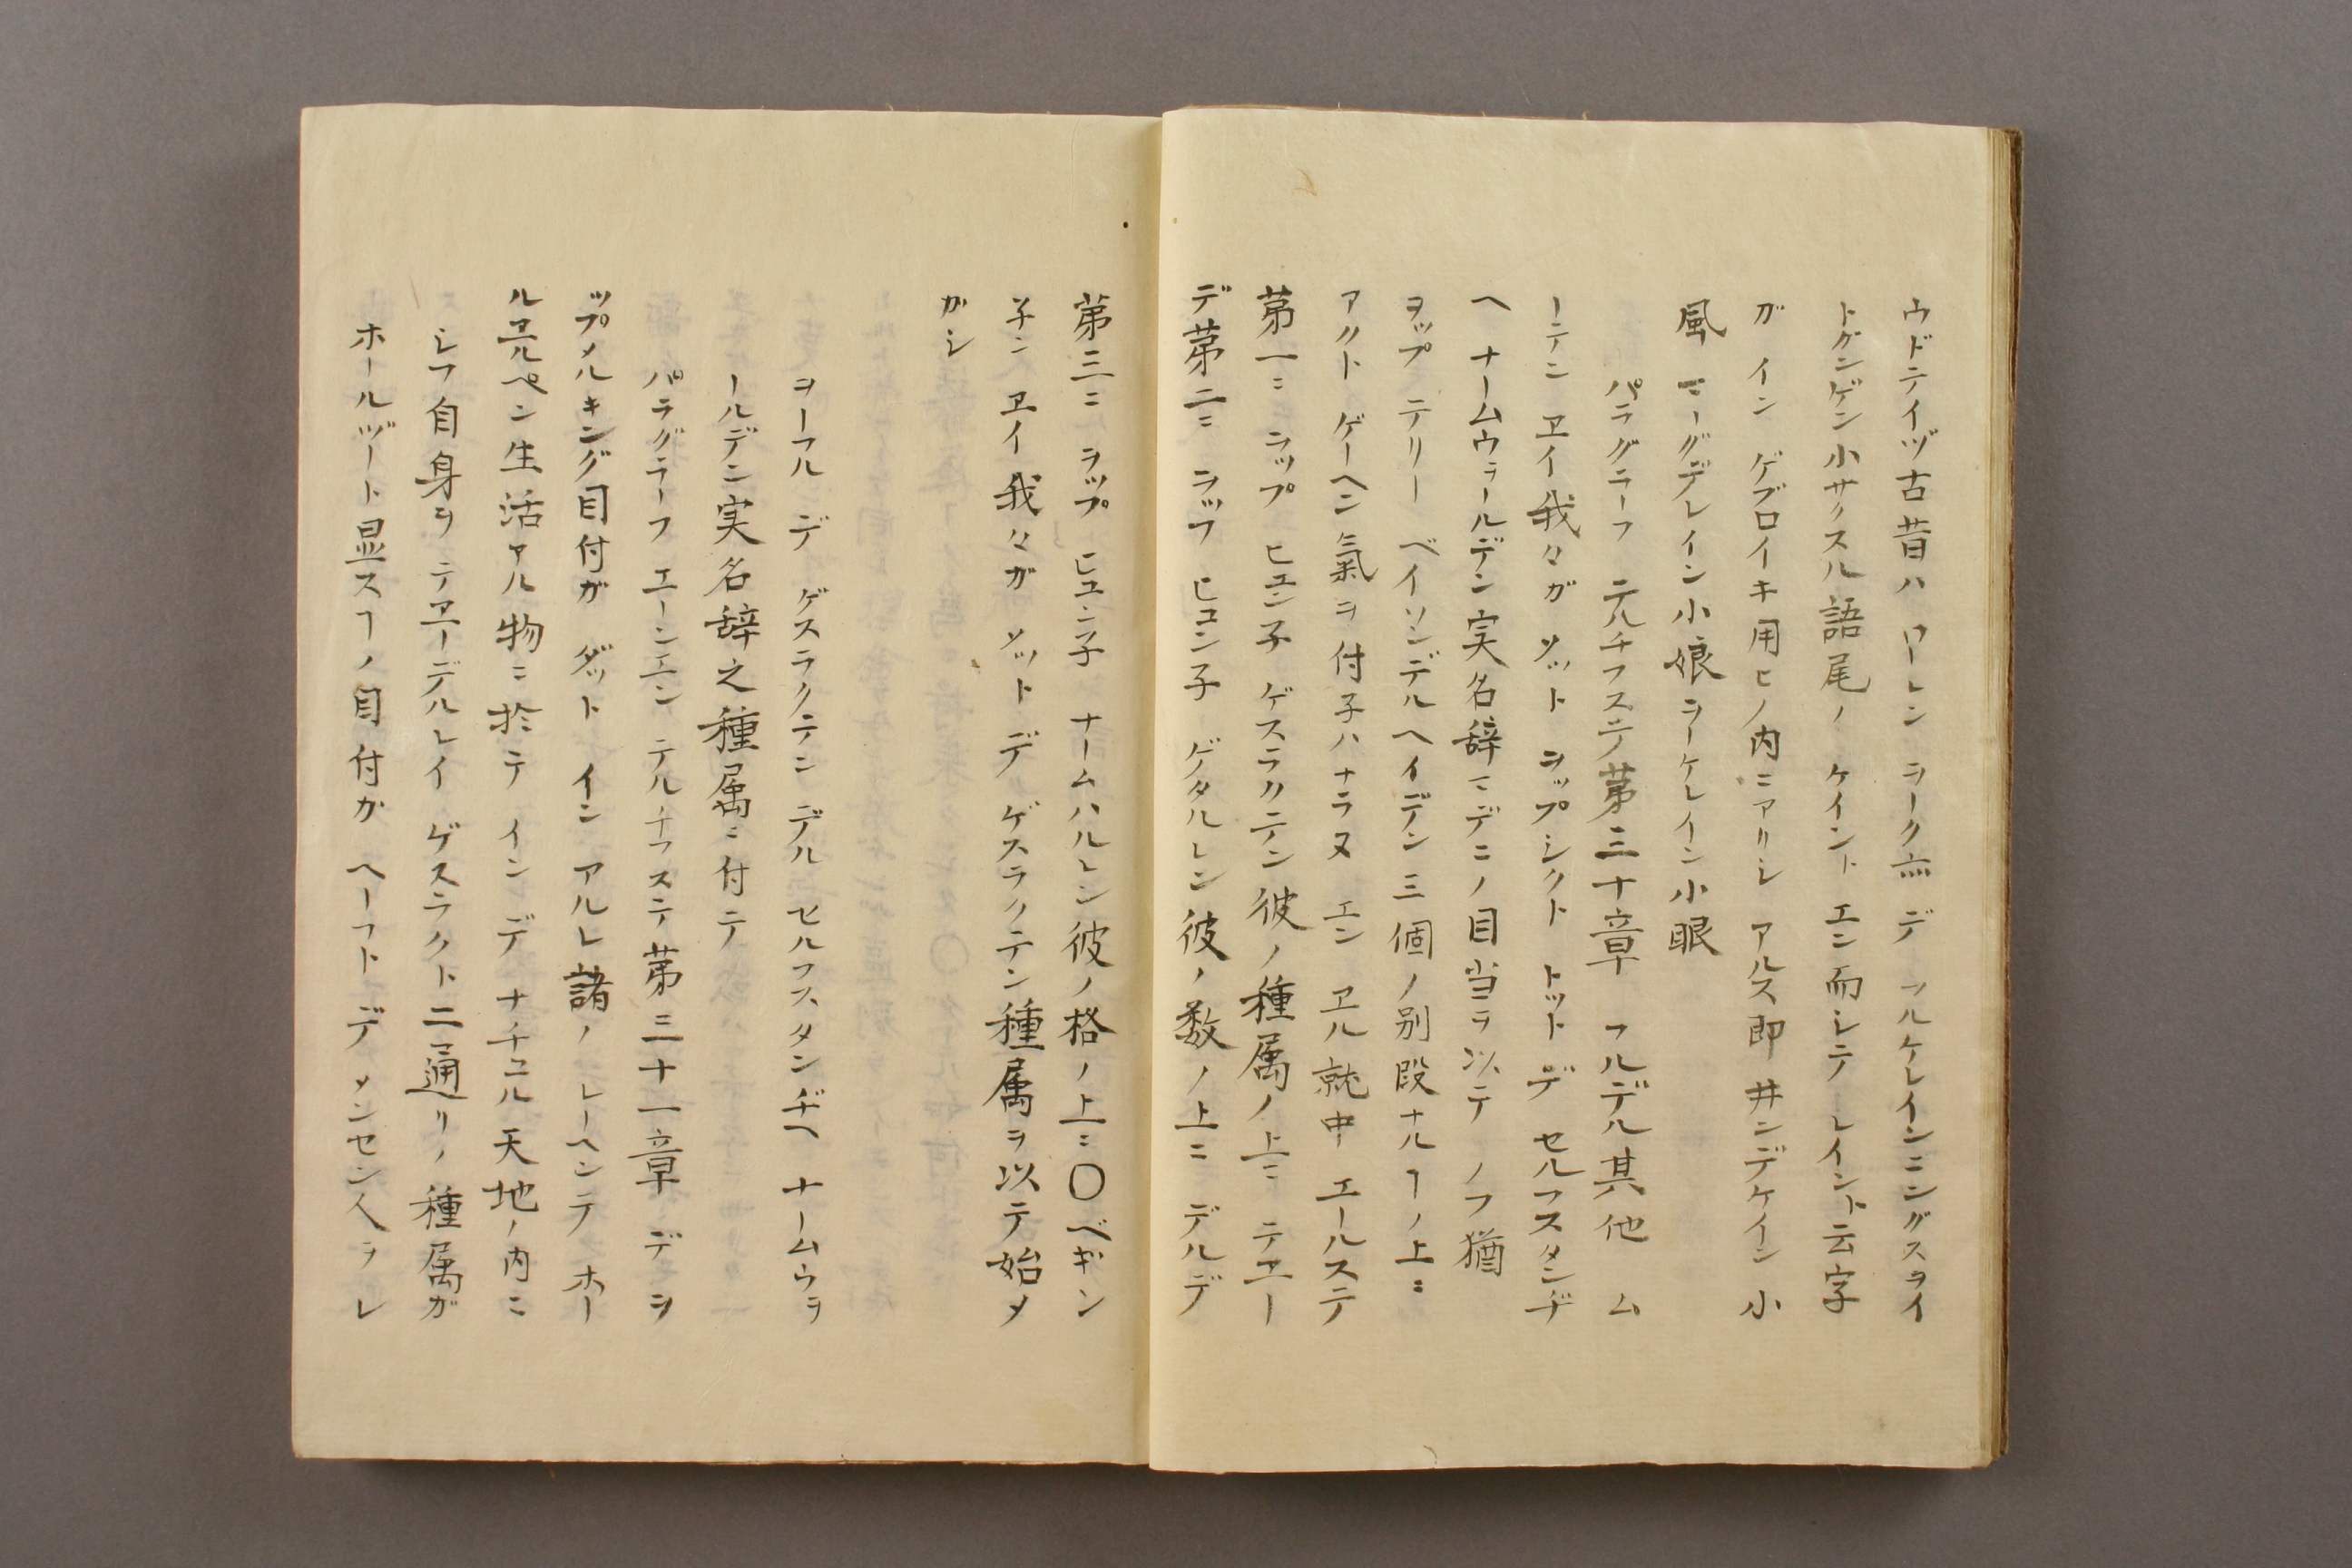 ウドテイヅ古昔ハ ローレン ヲーク亦 デ フルケレインニングスヲイ
トゲンゲン小サクスル語尾ノ ケイント エン而シテ レイント云字
ガ イン ゲブロイキ用ヒノ内ニアリシ アルス即 井ンデケイン 小
風 マーグデレイン小娘 ヲーケレイン小眼
パラグラーフ テルチフステ第三十章 フルデル其他 ム
ーテン ヱイ我々ガ ソット ヲップシクト トット デ セルフスタンヂ
ヘ ナームウヲールデン実名辞マデニノ目当ヲ以テ ノフ猶
ヲップ テリー ベイソンデルヘイデン三個ノ別段ナルヿノ上ニ
アクト ゲーヘン氣ヲ付子ハナラヌ エン ヱル就中 エールステ
第一ニ ヲップ ヒュン子 ゲスラクテン彼ノ種属ノ上ニ テヱー
デ第二ニ ヲップ ヒュン子 ゲタルレン彼ノ数ノ上ニ デルデ
第三ニ ヲップ ヒュン子 ナームハルレン彼ノ格ノ上ニ〇ベギン
子ン ヱイ我々ガ ソット デ ゲスラクテン種属ヲ以テ始メ
ガシ
ヲーフル デ ゲスラクテン デル セルフスタンヂヘ ナームウヲ
ールデン実名辞之種属ニ付テ
パラグラーフ エーンエン テルチフステ第三十一章 デ ヲ
ップメルキング目付ガ ダット イン アルレ諸ノ レーヘンテ ホー
ルヱルペン生活アル物ニ於テ イン デ ナチュル天地ノ内ニ
シフ自身ヲ テヱーデルレイ ゲスラクト二通リノ種属ガ
ホールヅート显スヿノ目付ガ ヘーフト デ メンセン人ヲシ